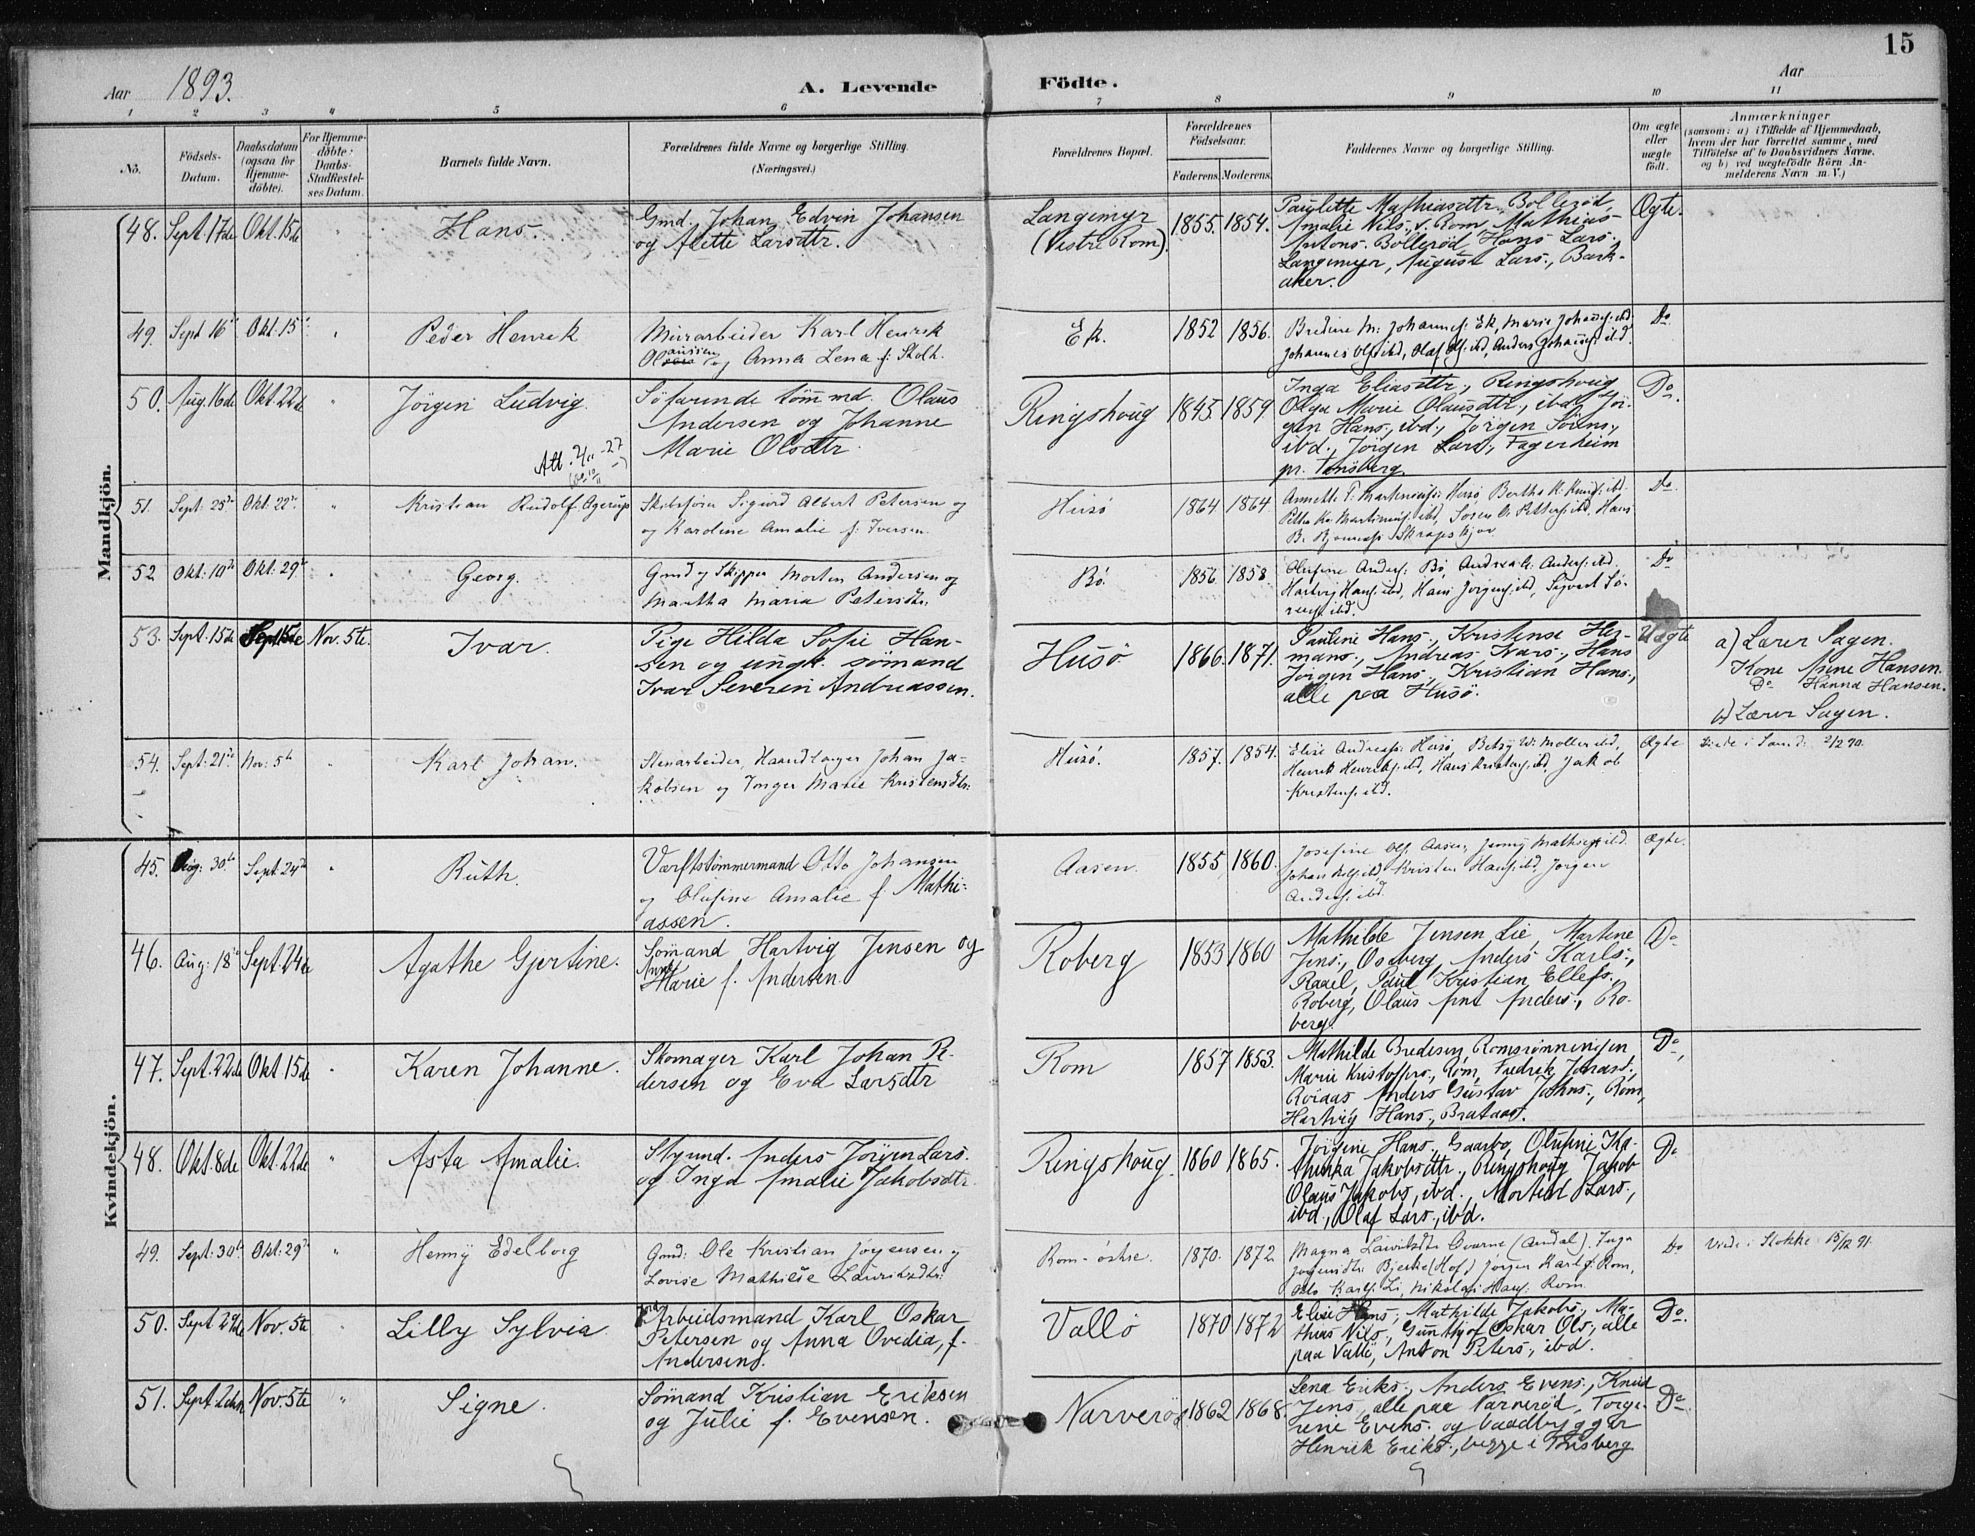 15
Aar 1893.
A. Levende Födte.
Aar
1 2 3 4 5 6 7 8 9 10 11
No.
Födsels-Datum.
Daabsdatum (ogsaa for Hjemme-döbte).
For Hjemme-döbte: Daabs-Stadfæstel-ses Datum.
Barnets fulde Navn.
Forældrenes fulde Navne og borgerlige Stilling. (Næringsvei.)
Forældrenes Bopæl.
Forældrenes Födselsaar.
Faderens. Moderens.
Faddernes Navne og borgerlige Stilling.
Om ægte eller uægte födt.
Anmærkninger
(saasom: a) i Tilfælde af Hjemmedaab,
hvem der har forrettet samme, med
Tilföielse af to Daabsvidners Navne.
og b) ved uægtefödte Börn An-
melderens Navn m. V.)
Mandkjön.
48. Sept. 17de Okt. 15de Hans.
Gmd. Johan Edvin Johansen
og Alette Larsdtr.
Langemyr
(Vestre Rom).
1855. 1854.
Paulette Mathiasdtr., Bollerød,
Amalie Nils., v. Rom, Mathias
Antons. Bollerød, Hans Lars.
Langemyr, August Lars., Bark-
aker.
Ægte.
49. Sept 16de Okt. 15de " Peder Henrik
Murarbeider Karl Henrik
Olaussen og Anna Lena f. Skolh.
Ek. 1852 1856.
Bredine M. Johannes. Ek, Marie Johans. ibd.
Johannes Ols. ibd, Olaf Ols. ibd, Anders Johans. ibd.
Do
50. Aug. 16de Okt. 22de " Jörgen Ludvig.
Söfarende tömmd. Olaus
Andersen og Johanne
Marie Olsdtr.
Ringshoug 1845. 1859.
Inga Eliasdtr., Ringshoug
Olga Marie Olausdtr., ibd, Jör-
gen Hans., ibd., Jörgen Sörens.,
ibd., Jörgen Lars., Fagerheim
pr. Tønsberg.
Do.
51. Sept. 25de Okt. 22de " Kristian Rudolf Agerup
Skibsförer Sigurd Albert Petersen og
og Karoline Amalie f. Iversen.
Husö 1864 1864
Do.
52. Okt. 10de Okt. 29de " Georg.
Gmd og Skipper Morten Andersen og
Martha Maria Petersdtr.
Bö. 1856. 1858.
Olufine Anders. Bö, Andrea G. Anders. ibd,
Hartvig Hans. ibd, Hans Jörgens. ibd, Sigvart Sö-
rens. ibd.
Do
53. Sept. 15de Sept. 15de Nov. 5te. Ivar.
Pige Hilda Sofie Han-
sen og ungk. sømand
Ivar Severin Andreassen.
Husö 1866. 1871.
Pauline Hans., Kristense Her-
mans., Andreas Ivars., Hans
Jörgen Hans., Kristian Hans.,
alle paa Husö.
Uægte
a) Lærer Sagen.
Kone Anne Hansen.
Do Hanna Hansen.
b) Lærer Sagen.
54. Sept. 21de Nov. 5te " Karl Johan.
Stenarbeider, Haandlanger Johan Ja-
kobsen og Inger Marie Kristensdtr.
Husö. 1857. 1854.
Elise Andreas. Husö, Betsy W. Moller ibd,
Henrik Henriks. ibd, Hans Kristens. ibd, Jakob
Kristens. ibd.
Ægte
Kvindekjön.
45. Aug: 30te Sept 24de " Ruth.
Værftstömmermand Otto Johansen
og Olufine Amalie f. Mathi-
assen.
Aasen. 1855 1860.
Josefine Ols. Aasen, Jenny Mathies. ibd.
Ægte.
46. Aug. 18de Sept. 24de Agathe Gjertine.
Sømand Hartvig Jensen og
Anne
Marie f. Andersen.
Roberg 1853 1860
Mathilde Jensen Lie Martine
Jens., Oseberg, Anders Karls.,
Raael, Paul Kristian Ellefs.
Roberg, Olaus Ant Anders., Ro-
berg.
Do
47. Sept. 22de Okt 15de " Karen Johanne.
Skomager Karl Johan Pe-
dersen og Eva Larsdtr
Rom 1857 1853.
Mathilde Bredesen, Romsrønningen
Marie Kristoffers., Rom, Fredrik Johans.,
Roiaas Anders Gustav Johns., Rom,
Hartvig Hans., Brataas.
Do,
48. Okt. 8de Okt. 22de " Asta Amalie.
Styrmd. Anders Jörgen Lars.
og Inga Amalie Jakobsdtr
Ringshoug. 1860 1865.
Jörgine Hans., Gaarbo, Olufine Ka-
thinka Jakobsdtr., Ringshoug, Jakob
Olaus Jakobs, ibd., Mortel Lars.,
ibd., Olaf Lars., ibd.
Do
49. Sept. 30te Okt. 29de " Henny Edelborg
Gmd: Ole Kristian Jörgensen og
Lovise Mathilde Lauritsdtr.
Rom-östre. 1870. 1872.
Do Viede i Stokke
50. Sept 29de Nov. 5te " Lilly Sylvia
Arbeidsmand Karl Oskar
Petersen og Anna Ovedia, f.
Andersen.
Vallö 1870 1872
Elise Hans., Mathilde Jakobs., Ma-
thias Nils., Gunthjof Oskar Ols., alle
paa Vallö, Anton Peters., ibd.
Do.
51. Sept. 2den Nov. 5te " Signe.
Sømand Kristian Eriksen
og Julie f. Evensen.
Narverød 1862 1868.
Lena Eriks., Anders Evens., Knud
Jens., alle paa Narverød, Torge-
rine Evens. og baadbygger
Henrik Eriks., begge i Tønsberg
Do.